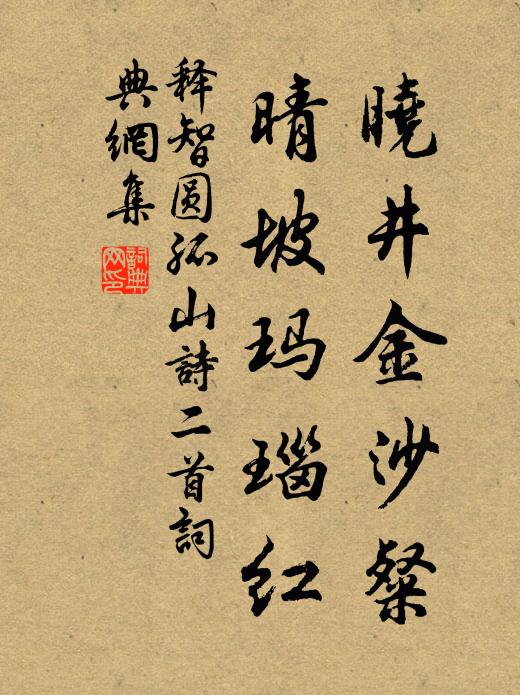 曉井金沙粲
晴坡玛瑙红
释智圆孤山詩二首詞
典網集
詞典网印